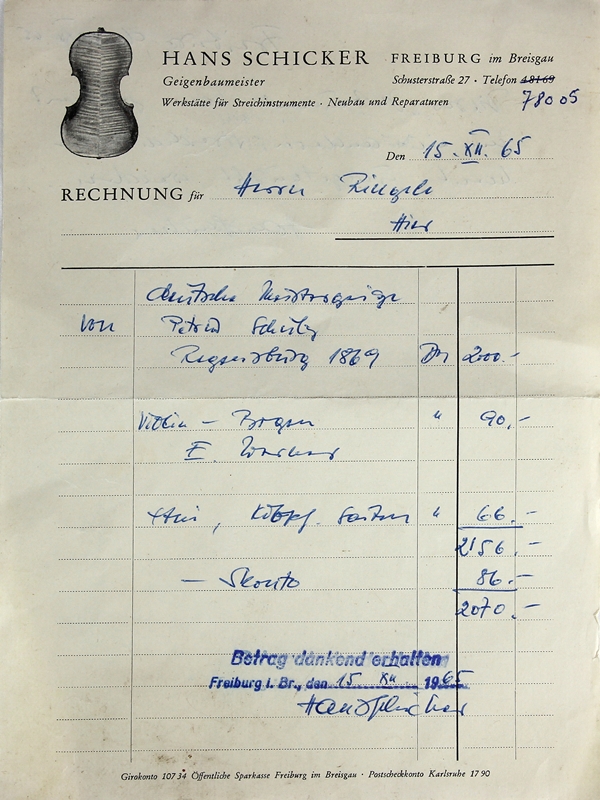 HANS SCHICKER FREIBURG im Breisgau
Geigenbaumeister Schusterstraße 27 · Telefon 48169
Werkstätte für Streichinstrumente · Neubau und Reparaturen 78005
Den 15. XII. 65
RECHNUNG für Herrn
Hier
deutsche Meistergeige
von
Regensburg 1869 DM 2000.-
Violin - Bogen " 90,-
E.
Etui, Saiten " 66.-
2156.-
- Skonto 86.-
2070.-
Betrag dankend erhalten
Freiburg i. Br., den 15 XII 1965
Hans Schicker
Girokonto 107 34 Öffentliche Sparkasse Freiburg im Breisgau · Postscheckkonto Karlsruhe 17 90